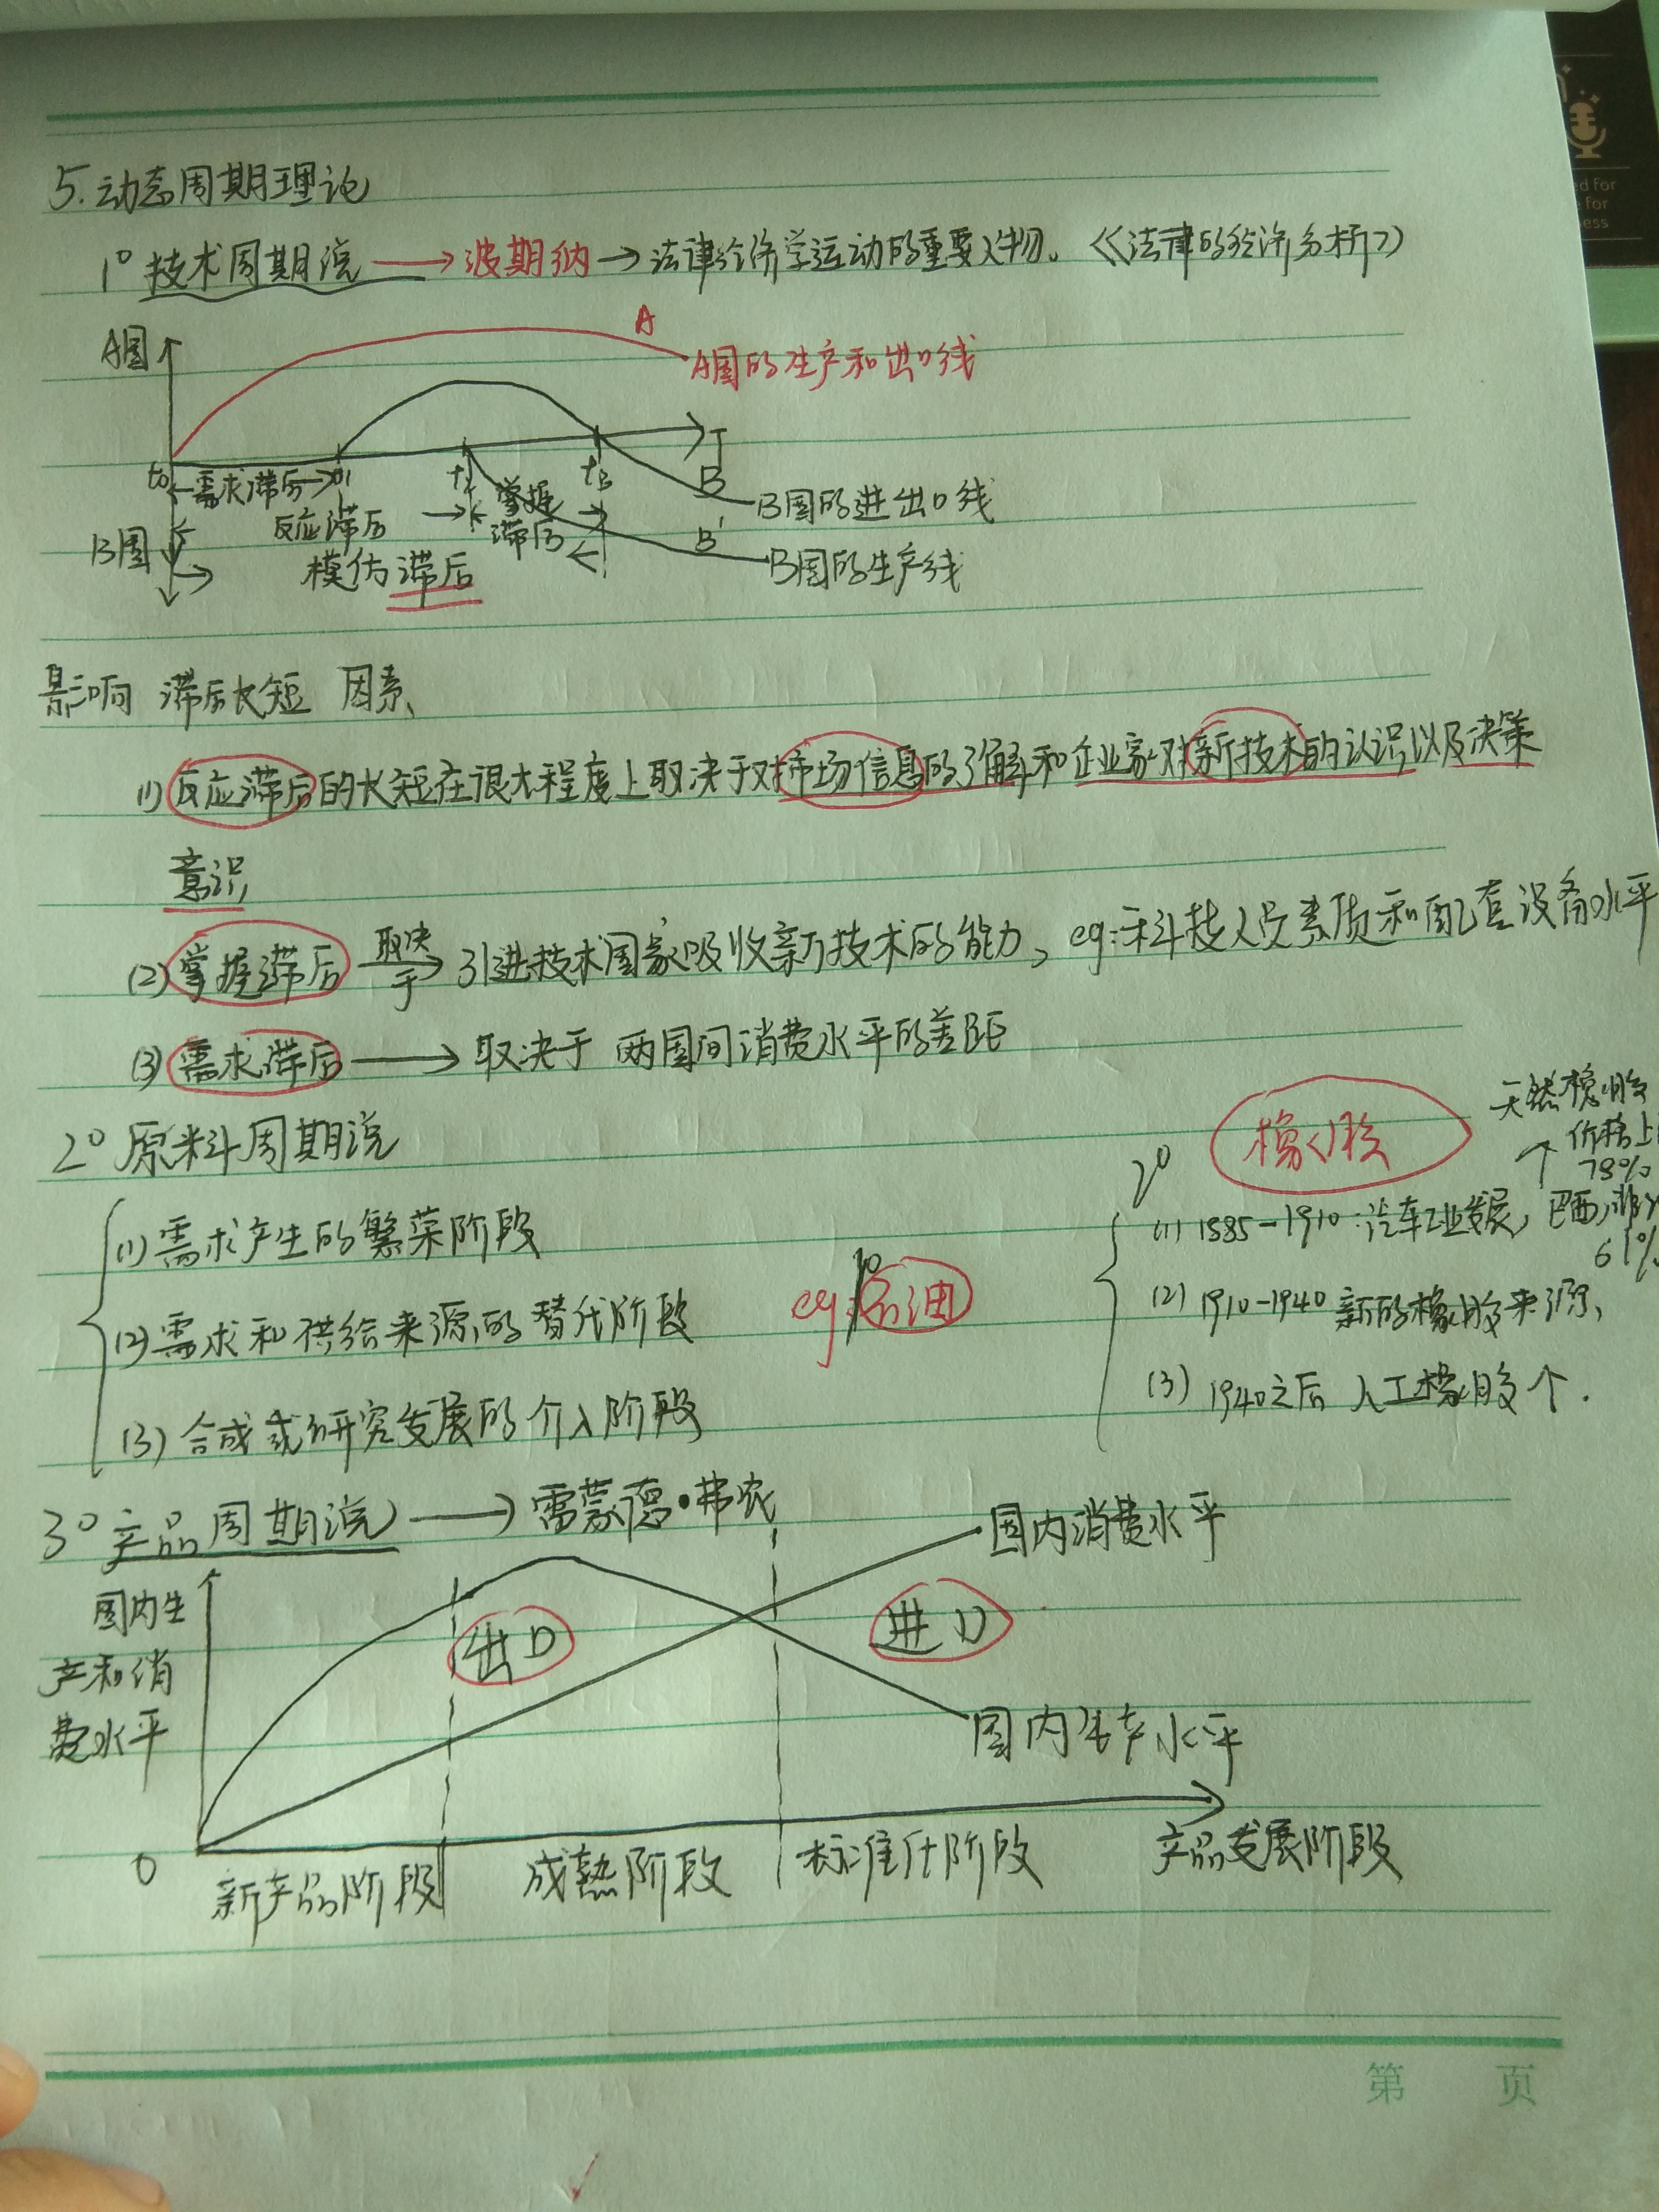 5.动态周期理论
1° 技术周期说 → 波期纳 → 法律经济学运动的重要人物。《法律的经济分析》
A国
A
A国的生产和出口线
T
t0 需求滞后 t1 t2 t3
掌握
滞后
反应滞后
B国
模仿滞后
B
B国的进出口线
B'
B国的生产线
影响 滞后长短 因素、
(1) 反应滞后的长短在很大程度上取决于对市场信息的了解和企业家对新技术的认识以及决策
意识,
(2) 掌握滞后 取决于→ 引进技术国家吸收新技术的能力、eg:科技人员素质和配套设备水平
(3) 需求滞后 → 取决于 两国间消费水平的差距
2° 原料周期说
(1) 需求产生的繁荣阶段
(2) 需求和供给来源的替代阶段
(3) 合成或研究发展的介入阶段
eg: 1° 石油
2° 橡胶
天然橡胶
价格上
78%
↑
(1) 1885-1910:汽车工业发展,巴西,非
61%
(2) 1910-1940 新的橡胶来源、
(3) 1940之后 人工橡胶个.
3° 产品周期说 → 雷蒙德·弗农
国内生
产和消
费水平
国内消费水平
出口
进口
国内生产水平
0
新产品阶段 成熟阶段 标准化阶段 产品发展阶段
第 页
ed for
for
ess